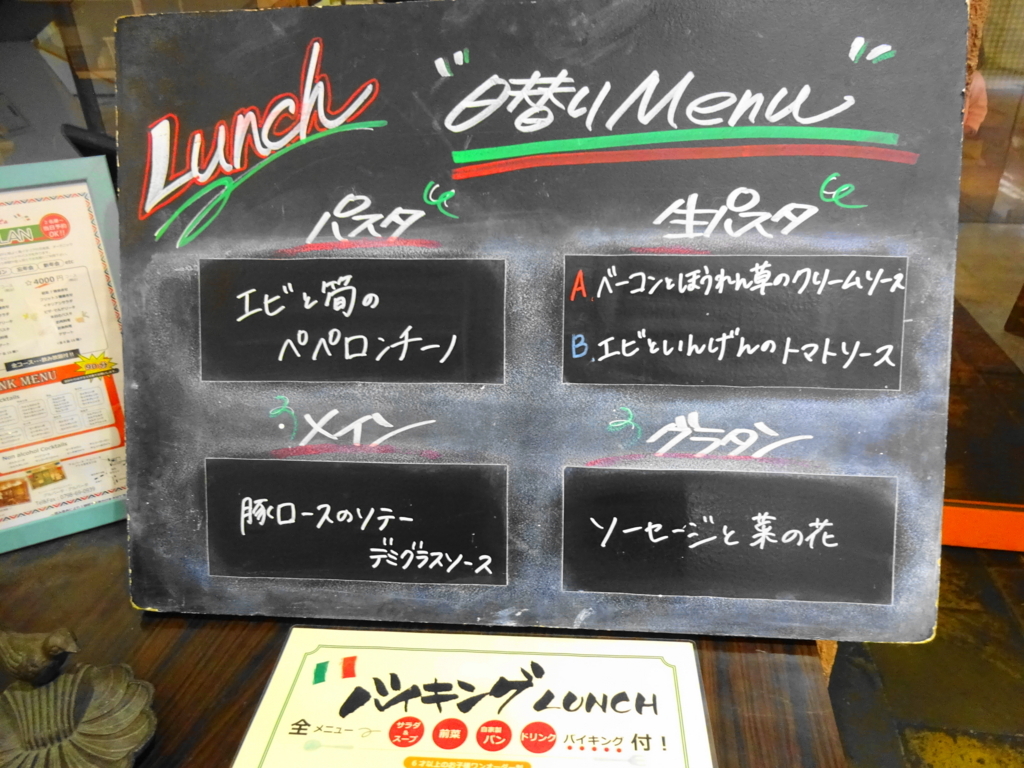 Lunch
"日替りMenu"
パスタ
エビと筍の
ペペロンチーノ
生パスタ
A. ベーコンとほうれん草のクリームソース
B. エビといんげんのトマトソース
メイン
豚ロースのソテー
デミグラスソース
グラタン
ソーセージと菜の花
バイキング LUNCH
全メニュー サラダ&スープ 前菜 自家製パン ドリンク バイキング 付!
LAN
☆4000円
90分
NK MENU
Non alcohol Cocktails